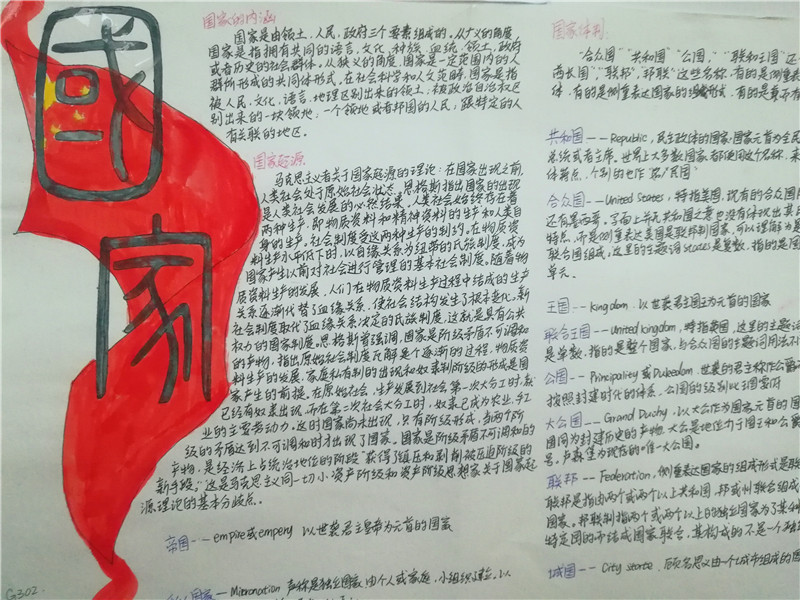 國家
国家的内涵
国家是由领土,人民,政府三个要素组成的。从广义的角度,
国家是指拥有共同的语言,文化,种族,血统,领土,政府
或者历史的社会群体。从狭义的角度,国家是一定范围内的人
群所形成的共同体形式,在社会科学和人文范畴,国家是指
被人民,文化,语言,地理区别出来的领土;被政治自治权区
别出来的一块领地;一个领地或者邦国的人民;跟特定的人
有关联的地区。
国家起源
马克思主义者关于国家起源的理论:在国家出现之前,
人类社会处于原始社会状态。恩格斯指出国家的出现
是人类社会发展的必然结果。人类社会始终存在着
两种生产,即物质资料和精神资料的生产和人类自
身的生产。社会制度受这两种生产的制约。在物质资
料生产水平低下时,以血缘关系为纽带的氏族制度,成为
国家产生以前对社会进行管理的基本社会制度。随着物
质资料生产的发展,人们在物质资料生产过程中结成的生产
关系逐渐代替了血缘关系,使社会结构发生了根本变化,新
社会制度取代了血缘关系决定的氏族制度,这就是具有公共
权力的国家制度。恩格斯着强调,国家是阶级矛盾不可调和
的产物,指出原始社会制度瓦解是个逐渐的过程,物质资
料生产的发展,家庭私有制的出现和奴隶制阶级的形成是国
家产生的前提。在原始社会,生产发展到社会第一次大分工时,就
已经有奴隶出现,而在第二次社会大分工时,奴隶已成为农业,手工
业的主要劳动力,这时国家尚未出现,只有阶级形成,当两个阶
级的矛盾达到不可调和时才出现了国家。国家是阶级矛盾不可调和的
产物,是经济上占统治地位的阶段“获得镇压和剥削被压迫阶级的
新手段,”这是马克思主义同一切小资产阶级和资产阶级思想家关于国家起
源理论的基本分歧点。
帝国--empire或empery 以世袭君主皇帝为元首的国家
国家--Micronation 声称是独立国家,由个人或家庭,小组织建立。以
G302.
国家体制
“合众国”“共和国”“公国”,“联和王国”还
两长国”,“联邦,邦联”这些名称,有的是侧重表
体,有的是侧重表达国家的组成形式,有的是兼而有
共和国--Republic,民主政体的国家,国家元首为全民
总统或者主席。世界上大多数国家都使用这个名称,来
体特点,个别的也作“民国”
合众国--United States,特指美国,现有的合众国
还有墨西哥,字面上并无共和国之意,也没有体现出其
特点,而是侧重表达美国是联邦制国家,可以理解为是
联合国组成,这里的主题词States是复数,指的是国
单元。
王国--kingdom,以世袭君主国王为元首的国家
联合王国--United kingdom,特指英国,这里的主题词
是单数,指的是整个国家,与合众国的主题词用法不
公国--Principality或Dukedom,世袭的君主称作公爵
按照封建时代的体系,公国的级别比王国要低
大公国--Grand Duchy,以大公作为国家元首的国
国同为封建历史的产物,大公是地位介于国王和公爵
号,卢森堡为现存的唯一大公国。
联邦--Federation,侧重表达国家的组成形式是联
联邦是指由两个或两个以上共和国,邦或州联合组成
国家。邦联制指两个或两个以上的独立国家为了某
特定目的而结成国家联合,其构成的不是一个独
城国--City state,顾名思义由一个城市组成的国